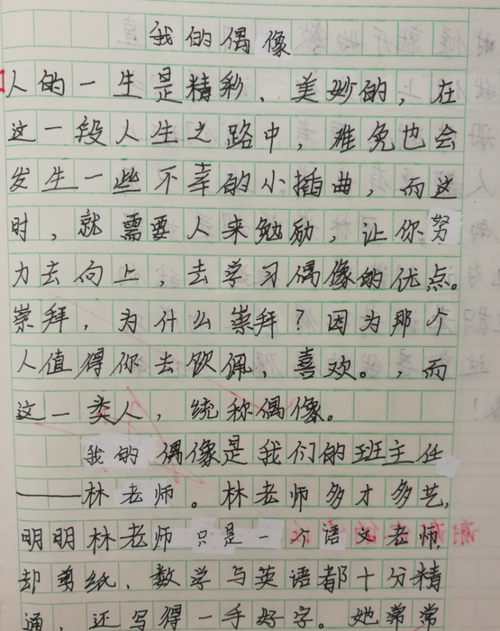 我的偶像
人的一生是精彩、美妙的，在
这一段人生之路中，难免也会
发生一些不幸的小插曲，而这
时，就需要人来勉励，让你努
力去向上，去学习偶像的优点。
崇拜，为什么崇拜？因为那个
人值得你去钦佩、喜欢。，而
这一类人，统称偶像。
我的偶像是我们的班主任
——林老师。林老师多才多艺，
明明林老师只是一个语文老师，
却剪纸、数学与英语都十分精
通，还写得一手好字。她常常